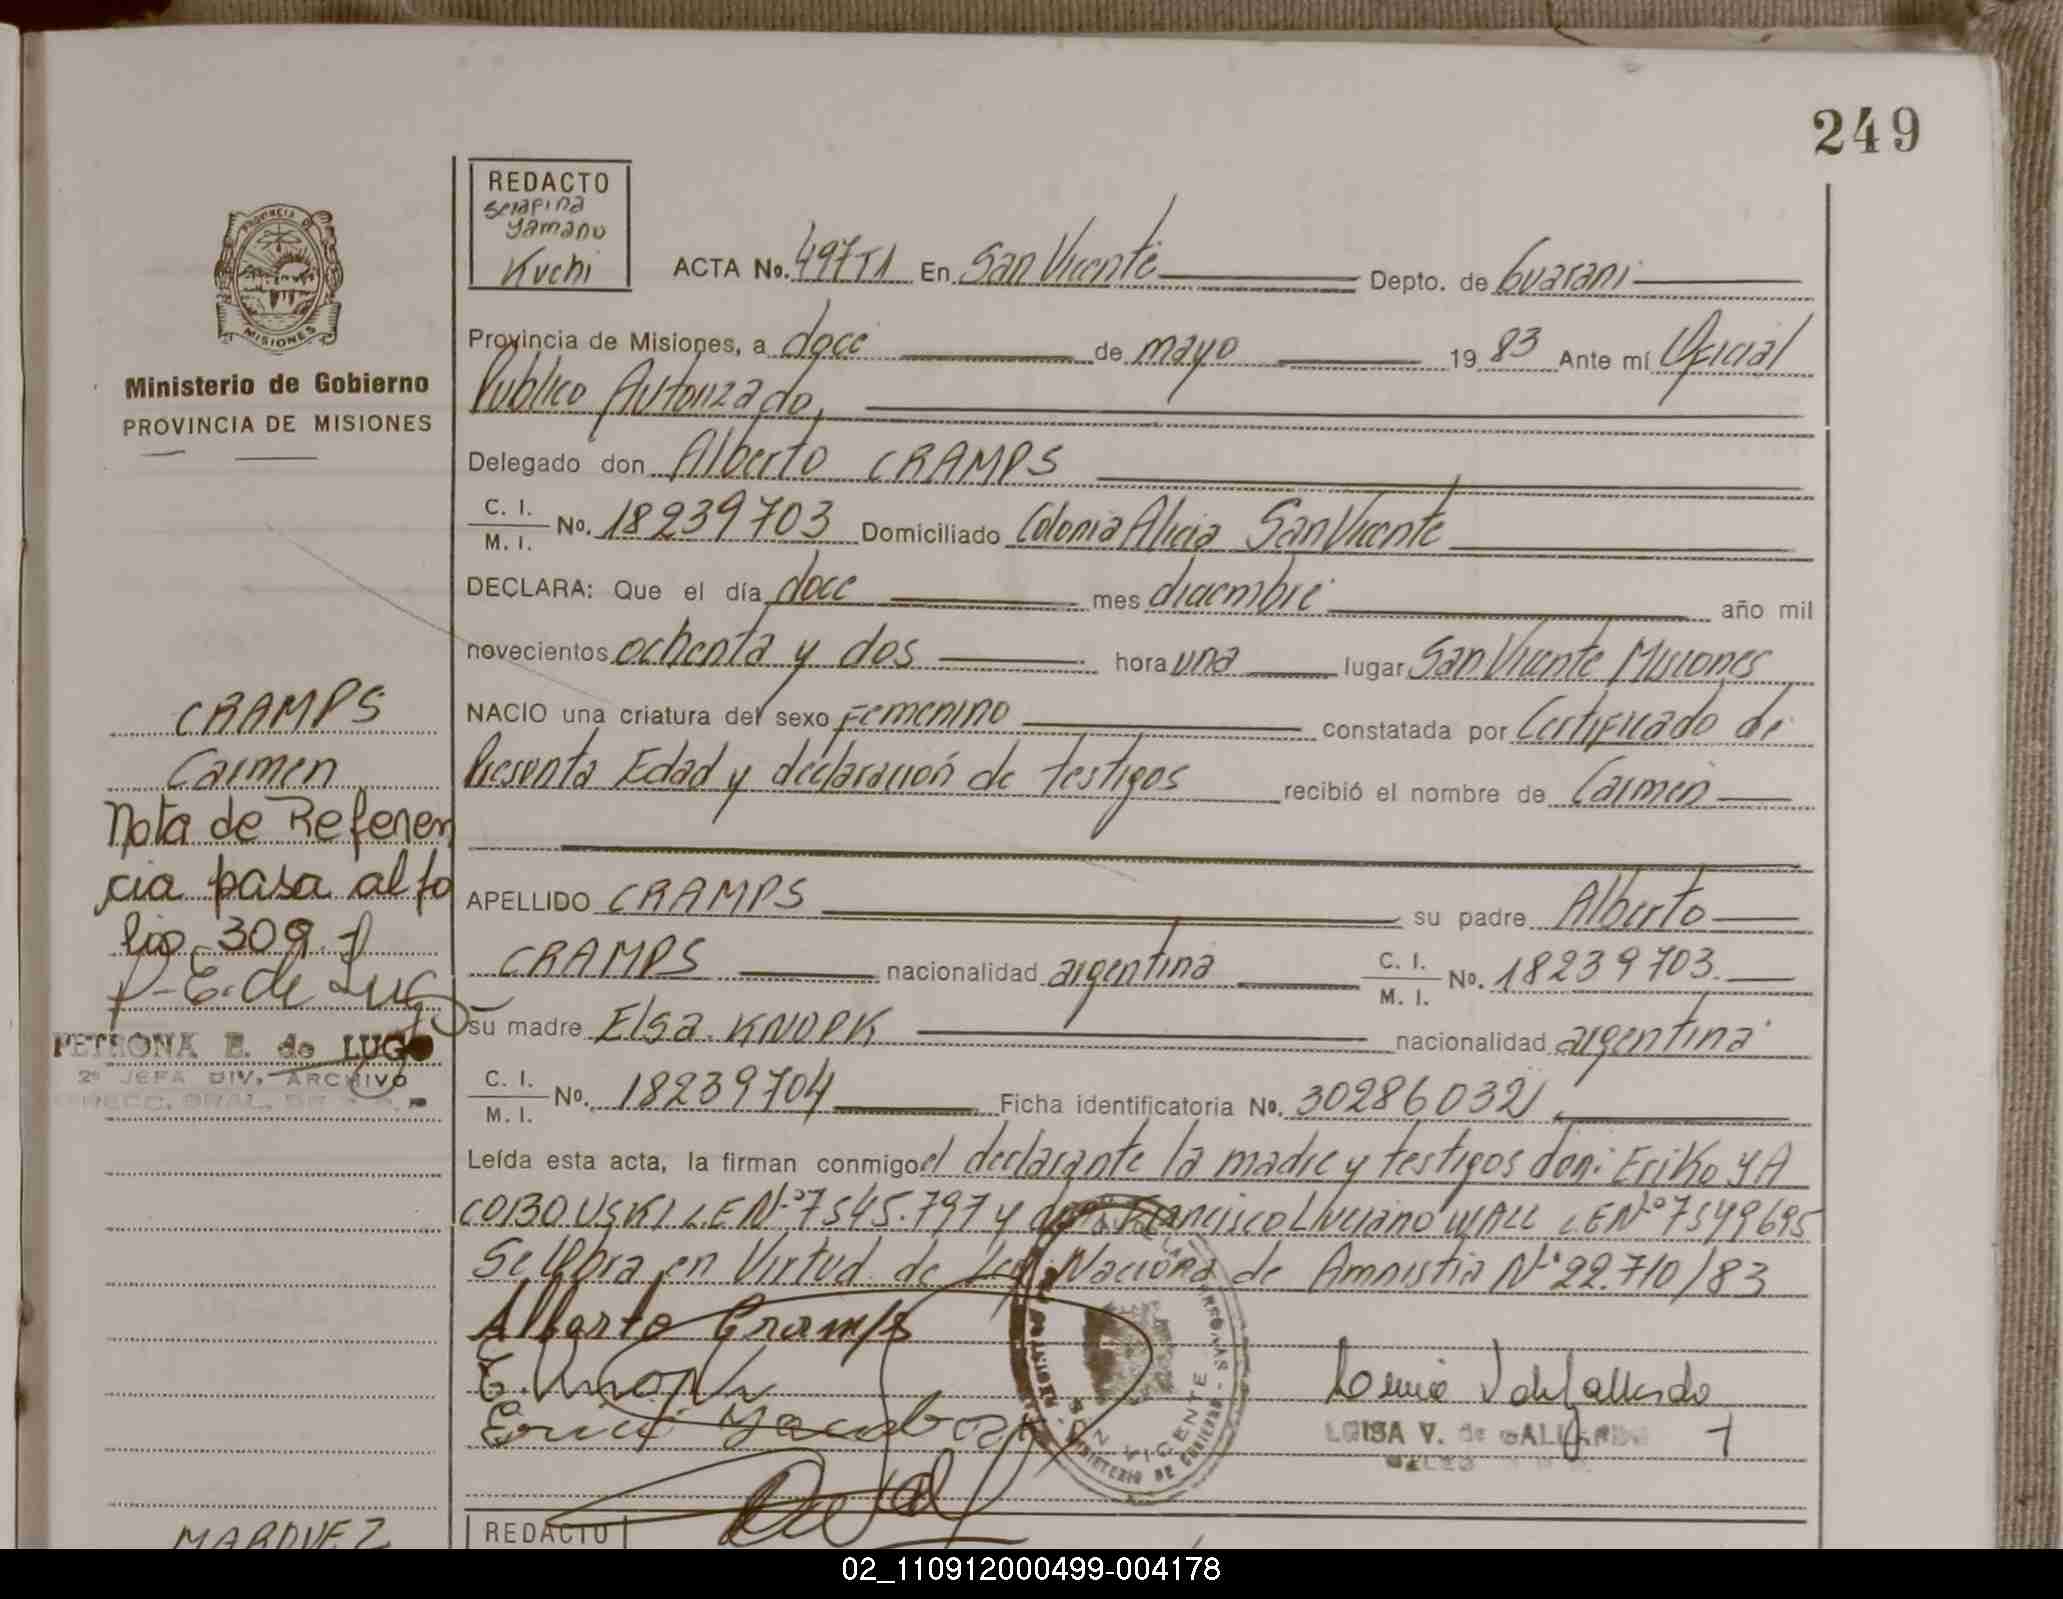 249
REDACTO
Serapina
Yamano
Kuchi
ACTA No. 497T1 En San Vicente Depto. de Guarani
Provincia de Misiones, a doce de mayo 1983 Ante mí Oficial
Publico Autorizado,
Ministerio de Gobierno
PROVINCIA DE MISIONES
Delegado don Alberto CRAMPS
C. I. / M. I. No. 18239703 Domiciliado Colonia Alicia San Vicente
DECLARA: Que el día doce mes diciembre año mil
novecientos ochenta y dos hora una lugar San Vicente Misiones
NACIO una criatura del sexo Femenino constatada por Certificado de
Presenta Edad y declaración de testigos recibió el nombre de Carmen
APELLIDO CRAMPS su padre Alberto
CRAMPS nacionalidad argentina C. I. / M. I. No. 18239703.
su madre Elsa KNOPK nacionalidad argentina
C. I. / M. I. No. 18239704 Ficha identificatoria No. 30286032
Leída esta acta, la firman conmigo el declarante la madre y testigos don: Eriko YA
COBOUSKI L.E Nº 7545.797 y don Francisco Luciano WALL L.E Nº 7549695
Se labra en Virtud de Ley Naciona de Amnistia Nº 22.710/83
Alberto Cramps
E. Knopk
LUISA V. de GALLARDO
SAN VICENTE
MINISTERIO DE GOBIERNO
CRAMPS
Carmen
Nota de Referen
cia pasa al fo
lio 309
P. E. de Lugo
PETRONA E. de LUGO
2ª JEFA DIV. ARCHIVO
MARQUEZ
REDACTO
02_110912000499-004178